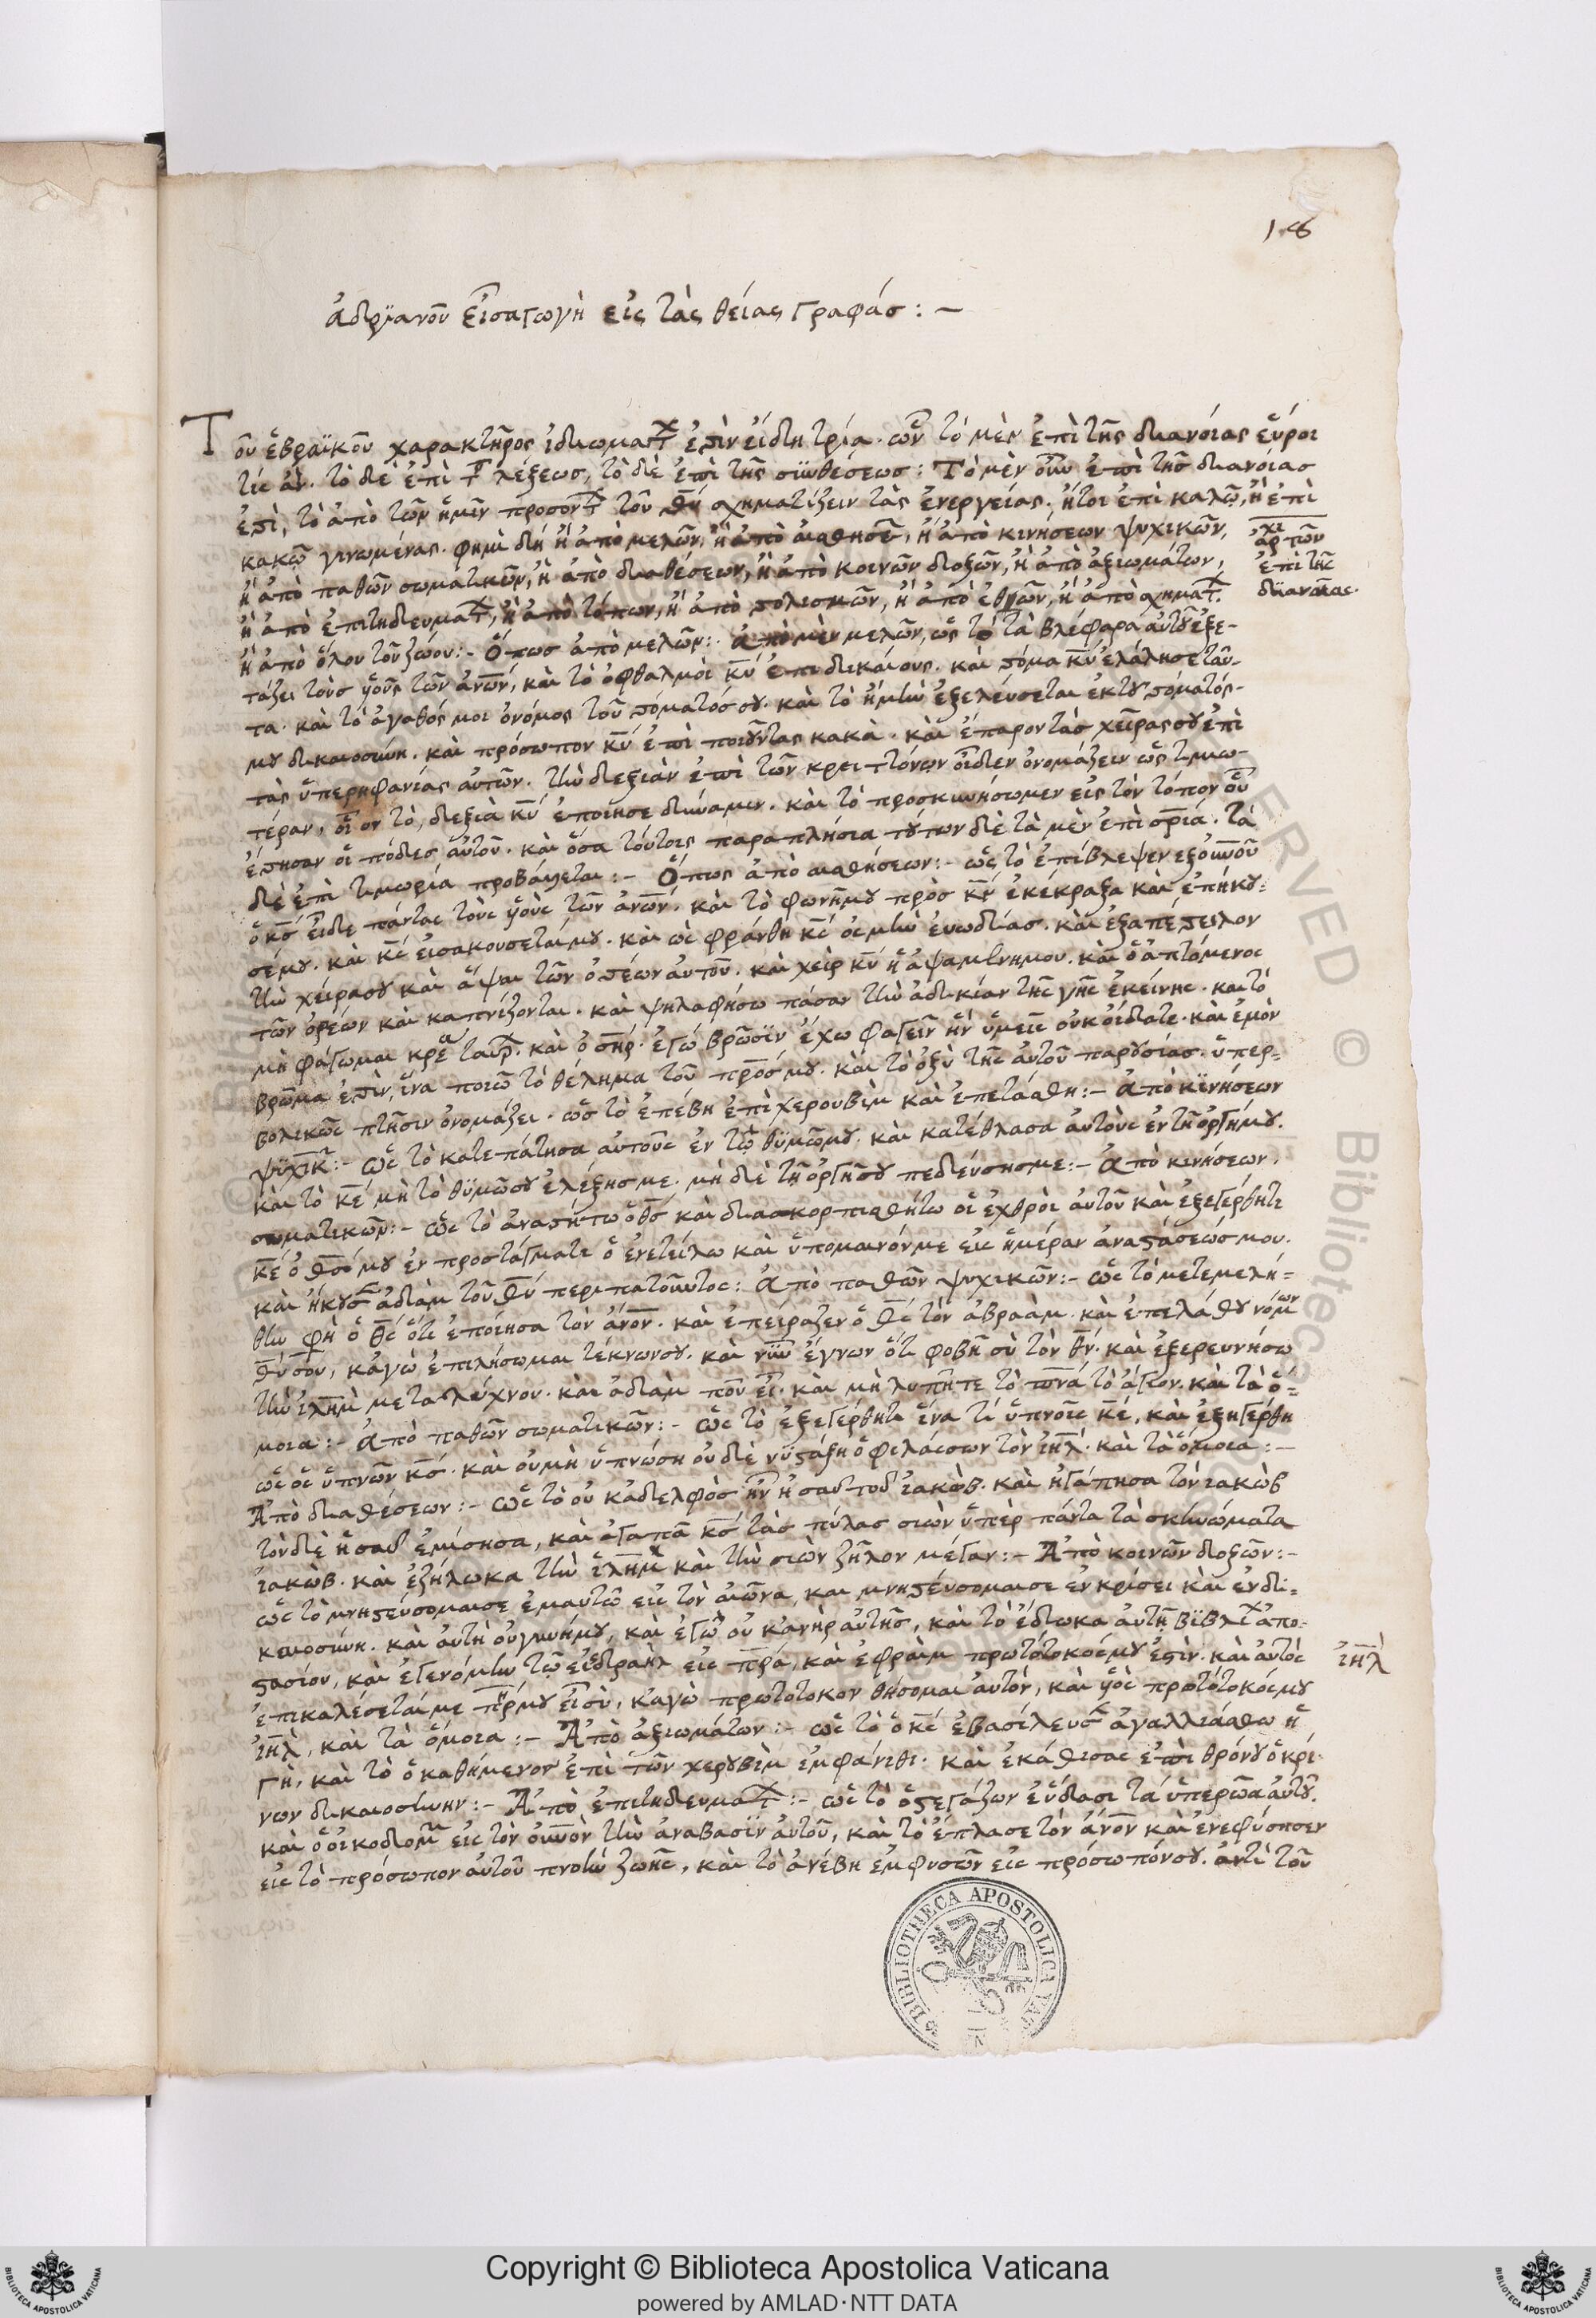 ἀδριανοῦ εἰσαγωγὴ εἰς τὰς θείας γραφάσ : ~
Τοῦ ἑβραϊκοῦ χαρακτῆρος ἰδιωμάτ ἐστὶν εἴδη τρία. ὧν τὸ μὲν ἐπὶ τῆς διανοίας εὕροι
τίς ἄν. τὸ δὲ ἐπὶ τ λέξεως, τὸ δὲ ἐπὶ τῆς συνθέσεως : Τὸ μὲν οὖν ἐπὶ τῆσ διανοίασ
ἐστὶ, τὸ ἀπὸ τῶν ἡμῖν προσόντ τοῦ θυ σχηματίζειν τὰς ἐνεργείας. ἤτοι ἐπὶ καλῶ, ἢ ἐπὶ
κακῶ γινωμένας. φημὶ δὴ ἢ ἀπὸ μελῶν, ἢ ἀπὸ αἰσθήσε, ἢ ἀπὸ κινήσεων ψυχικῶν,
ἢ ἀπὸ παθῶν σωματικῶν, ἢ ἀπὸ διαθέσεων, ἢ ἀπὸ κοινῶν δοξῶν, ἢ ἀπὸ ἀξιωμάτων,
ἢ ἀπὸ ἐπιτηδευμάτ, ἢ ἀπὸ τόπων, ἢ ἀπὸ στολισμῶν, ἢ ἀπὸ ἐθῶν, ἢ ἀπὸ σχημάτ.
ἢ ἀπὸ ὅλου τοῦ ζώου :- Ὅπωσ ἀπὸ μελῶν :. ἀπὸ μὲν μελῶν, ὡς τὸ τὰ βλέφαρα αὐτοῦ ἐξε-
τάζει τοὺσ υἱοὺς τῶν ἀνων, καὶ τὸ ὀφθαλμοὶ κυ ἐπι δικαίους. καὶ στόμα κυ ἐλάλησε ταῦ-
τα. καὶ τὸ ἀγαθός μοι ὁ νόμος τοῦ στόματός σου. καὶ τὸ ἡμῶ ἐξελεύσεται ἐκ τοῦ στόματός-
μου δικαιοσύνη. καὶ πρόσωπον κυ ἐπὶ ποιοῦντας κακὰ. καὶ ἔπαρον τὰσ χεῖρας σου ἐπὶ
τὰς ὑπερηφανίας αὐτῶν. τὴν δεξιὰν ἐπὶ τῶν κρειττόνων οἶδεν ὀνομάζειν ὡς τιμιω-
τέραν, οἷον τὸ, δεξιὰ κυ ἐποίησε δύναμιν. καὶ τὸ προσκυνήσωμεν εἰς τὸν τόπον οὗ
ἔστησαν οἱ πόδεσ αὐτοῦ. καὶ ὅσα τούτοις παραπλήσια τούτων δὲ τὰ μὲν ἐπὶ σρία. τὰ
δὲ ἐπὶ τιμωρία προβάλλεται :- Ὅπως ἀπὸ αἰσθήσεων :- ὡς τὸ ἐπίβλεψεν ἐξ οὐνοῦ
ὁ κσ εἶδε πάντας τοὺς υἱοὺς τῶν ἀνων. καὶ τὸ φωνῆ μου πρὸσ κν ἐκέκραξα καὶ ἐπήκου=
σέ μου. καὶ κς εἰσακούσεταί μου. καὶ ὡς φράνθη κς ὀσμὴν εὐωδίασ. καὶ ἐξαπέστειλον
τὴν χεῖρα σου καὶ ἅψαι τῶν ὀστέων αὐτοῦ. καὶ χεὶρ κυ ἡ ἁψαμένη μου. καὶ ὁ ἁπτόμενος
τῶν ὀρέων καὶ καπνίζονται. καὶ ψηλαφήσω πᾶσαν τὴν ἀδικίαν τῆς γῆς ἐκείνης. καὶ τὸ
μὴ φάγωμαι κρέα ταύρ. καὶ ὁ σηρ. ἐγὼ βρῶσιν ἔχω φαγεῖν ἣν ὑμεῖς οὐκ οἴδατε. καὶ ἐμὸν
βρῶμα ἐστὶν, ἵνα ποιῶ τὸ θέλημα τοῦ πρόσ μου. καὶ τὸ ὀξὺ τῆς αὐτοῦ παρουσίασ. ὑπερ=
βολικῶς πτῆσιν ὀνομάζει. ὡς τὸ ἐπέβη ἐπὶ χερουβὶμ καὶ ἐπετάσθη :- ἀπὸ κινήσεων
ψυχικ :- ὡς τὸ κατεπάτησα αὐτοὺς ἐν τῷ θυμῶ μου. καὶ κατέθλασα αὐτοὺς ἐν τῇ ὀργῆ μου.
καὶ τὸ κε μὴ τὸ θυμῶ σου ἐλέγξησ με. μὴ δὲ τῇ ὀργῆ σου πεδεύσησ με :- ἀπὸ κινήσεων.
σωματικῶν :- ὡς τὸ ἀναστήτω ὁ θσ καὶ διασκορπισθήτω οἱ ἐχθροὶ αὐτοῦ καὶ ἐξεγέρθητι
κε ὁ θσ μου ἐν προστάγματι ὃ ἐνετείλω καὶ ὑπομαινόν με εἰς ἡμέραν ἀναστάσεώς μου.
καὶ ἤκουσ ἀδὰμ τοῦ θυ περιπατοῦντος : ἀπὸ παθῶν ψυχικῶν :- ὡς τὸ μετεμελή=
θην φη ὁ θς ὅτι ἐποίησα τὸν ἄνον. καὶ ἐπείραζεν ὁ θς τὸν ἀβραὰμ. καὶ ἐπελάθου νόμων
θυ σου, καγὼ ἐπιλήσομαι τέκνων σου. καὶ νῦν ἔγνων ὅτι φοβῆ σὺ τὸν θν. καὶ ἐξερευνήσω
τὴν ἰλημ μετα λύχνου. καὶ ἀδὰμ ποῦ εἶ. καὶ μὴ λυπῆτε τὸ πνα τὸ ἅγιον. καὶ τὰ ὅ=
μοια :- ἀπὸ παθῶν σωματικῶν :- ὡς τὸ ἐξεγέρθητι ἵνα τί ὑπνοῖς κε, καὶ ἐξηγέρθη
ὡς ὁ ὑπνῶν κσ. καὶ οὐ μὴ ὑπνώση οὐδὲ νυστάξη ὁ φυλάσσων τὸν ιηλ. καὶ τὰ ὅμοια :-
Ἀπὸ διαθέσεων :- ὡς τὸ οὐκ ἀδελφὸσ ἦν ἠσαῦ τοῦ ἰακώβ. καὶ ἠγάπησα τὸν ἰακὼβ
τὸν δὲ ἠσαῦ ἐμίσησα, καὶ ἀγαπᾶ κσ τὰσ πύλασ σιὼν ὑπὲρ πάντα τὰ σκηνώματα
ἰακώβ. καὶ ἐζήλωκα τὴν ἰλημ καὶ τὴν σιὼν ζῆλον μέγαν :- Ἀπὸ κοινῶν δοξῶν :-
ὡς τὸ μνηστεύσομαι σε ἐμαυτῶ εἰς τὸν αἰῶνα, καὶ μνηστεύσομαι σε ἐν κρίσει καὶ ἐν δι=
κειοσύνη. καὶ αὐτὴ οὐ γυνή μου, καὶ ἐγὼ οὐκ ἀνὴρ αὐτῆς, καὶ τὸ ἔδωκα αὐτῆ βιβλι ἀπο-
στασίου, καὶ ἐγενόμην τῷ εἰσδραὴλ εἰς πρα, καὶ ἐφραὶμ πρωτότοκός μου ἐστὶν. καὶ αὐτὸς
ἐπικαλέσεταί με πηρ μου εἶ σὺ, κἀγὼ πρωτότοκον θήσομαι αὐτὸν, καὶ υἱὸς πρωτότοκός μου
ιηλ, καὶ τὰ ὅμοια :- Ἀπὸ ἀξιωμάτων :- ὡς τὸ ὁ κς ἐβασίλευσ ἀγαλλιάσθω ἡ
γῆ, καὶ τὸ ὁ καθήμενος ἐπὶ τῶν χερουβὶμ ἐμφάνηθι. καὶ ἐκάθισας ἐπὶ θρόνου ὁ κρί-
νων δικαιοσύνην :- Ἀπὸ ἐπιτηδευμάτ :- ὡς τὸ ὁ στεγάζων ἐν ὕδασι τὰ ὑπερῶα αὐτοῦ.
καὶ ὁ οἰκοδομ εἰς τὸν οὐνον τὴν ἀναβασὶν αὐτοῦ, καὶ τὸ ἔπλασε τὸν ἄνον καὶ ἐνεφύσησεν
εἰς τὸ πρόσωπον αὐτοῦ πνοὴν ζωῆς, καὶ τὸ ἀνέβη ἐμφυσῶν εἰς πρόσωπόν σου. ἀντὶ τοῦ
ἀρχὶ τῶν
ἐπὶ τῆς
διανοίας.
ιηλ
BIBLIOTHECA APOSTOLICA
Copyright © Biblioteca Apostolica Vaticana
powered by AMLAD·NTT DATA